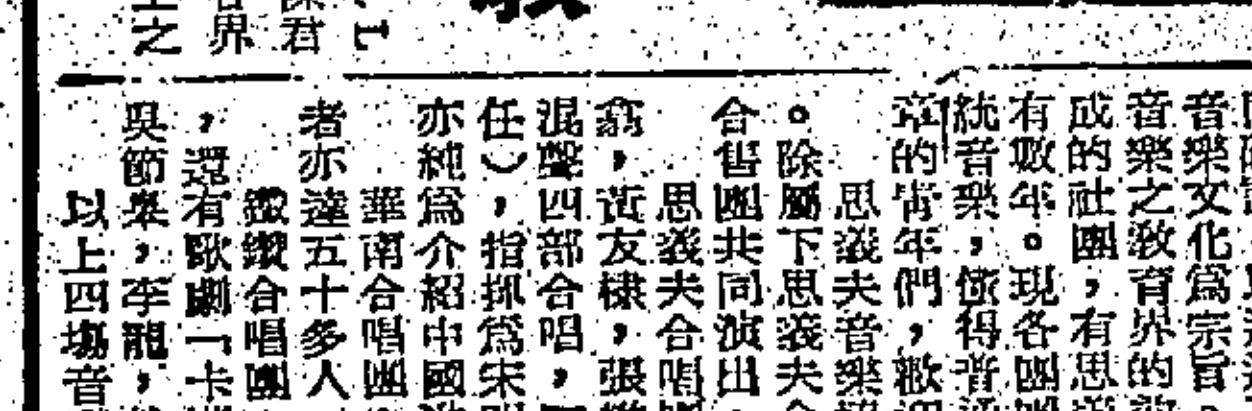 音樂文化爲宗旨
音樂之敎育界的
成的社團，有思
有數年。現各團
統音樂，使得普
的靑年們，歡
思義夫音樂
。除屬下思義夫
合唱團共同演出
思義夫合唱
，黃友棣，張
混聲四部合唱，
任），指揮爲宋
亦純爲介紹中國
華南合唱團
者亦達五十多人
鐵鑽合唱團
，還有歌劇「卡
吳節皋，李龍，
以上四場音
之
界
君